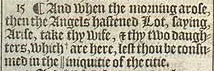 15 ¶ And when the morning arose,
then the Angels hastened Lot, saying,
Arise, take thy wife, & thy two daugh-
ters, which are here, lest thou be consu-
med in the ||iniquitie of the citie.